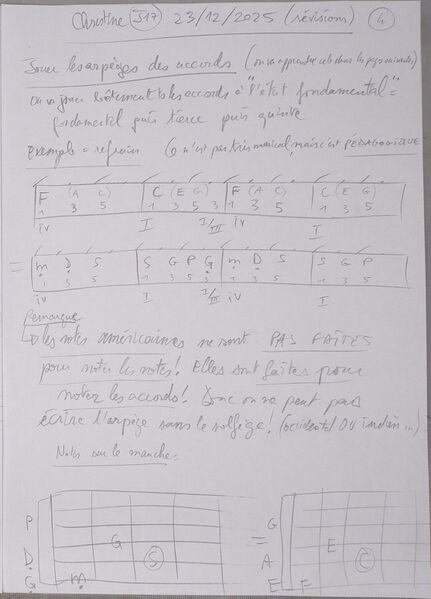 Christine J17 23/12/2025 (révisions) 4
Jouer les arpèges des accords (on va apprendre cela dans les pages suivantes)
On va jouer bêtement ts les accords à "l'état fondamental" =
fondamental puis tierce puis quinte
Exemple = refrain ↳ n'est pas très musical, mais c'est PÉDAGOGIQUE
F (A C) C (E G) F (A C) C (E G)
1 3 5 1 3 5 3 1 3 5 1 3 5
IV I I/III IV I
= m D S S G P G m D S S G P
1 3 5 1 3 5 3 1 3 5 1 3 5
IV I I/III IV I
Remarque
↳ les notes américaines ne sont PAS FAITES
pour noter les notes! Elles sont faites pour
noter les accords! Donc on ne peut pas
écrire l'arpège sans le solfège! (occidental OU indien ...)
Notes sur le manche =
P G
G E
D S = A C
G m E F